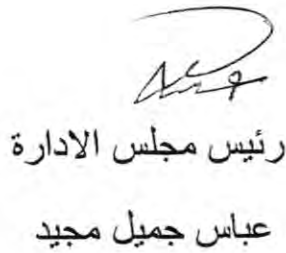 رئيس مجلس الادارة
عباس جميل مجيد